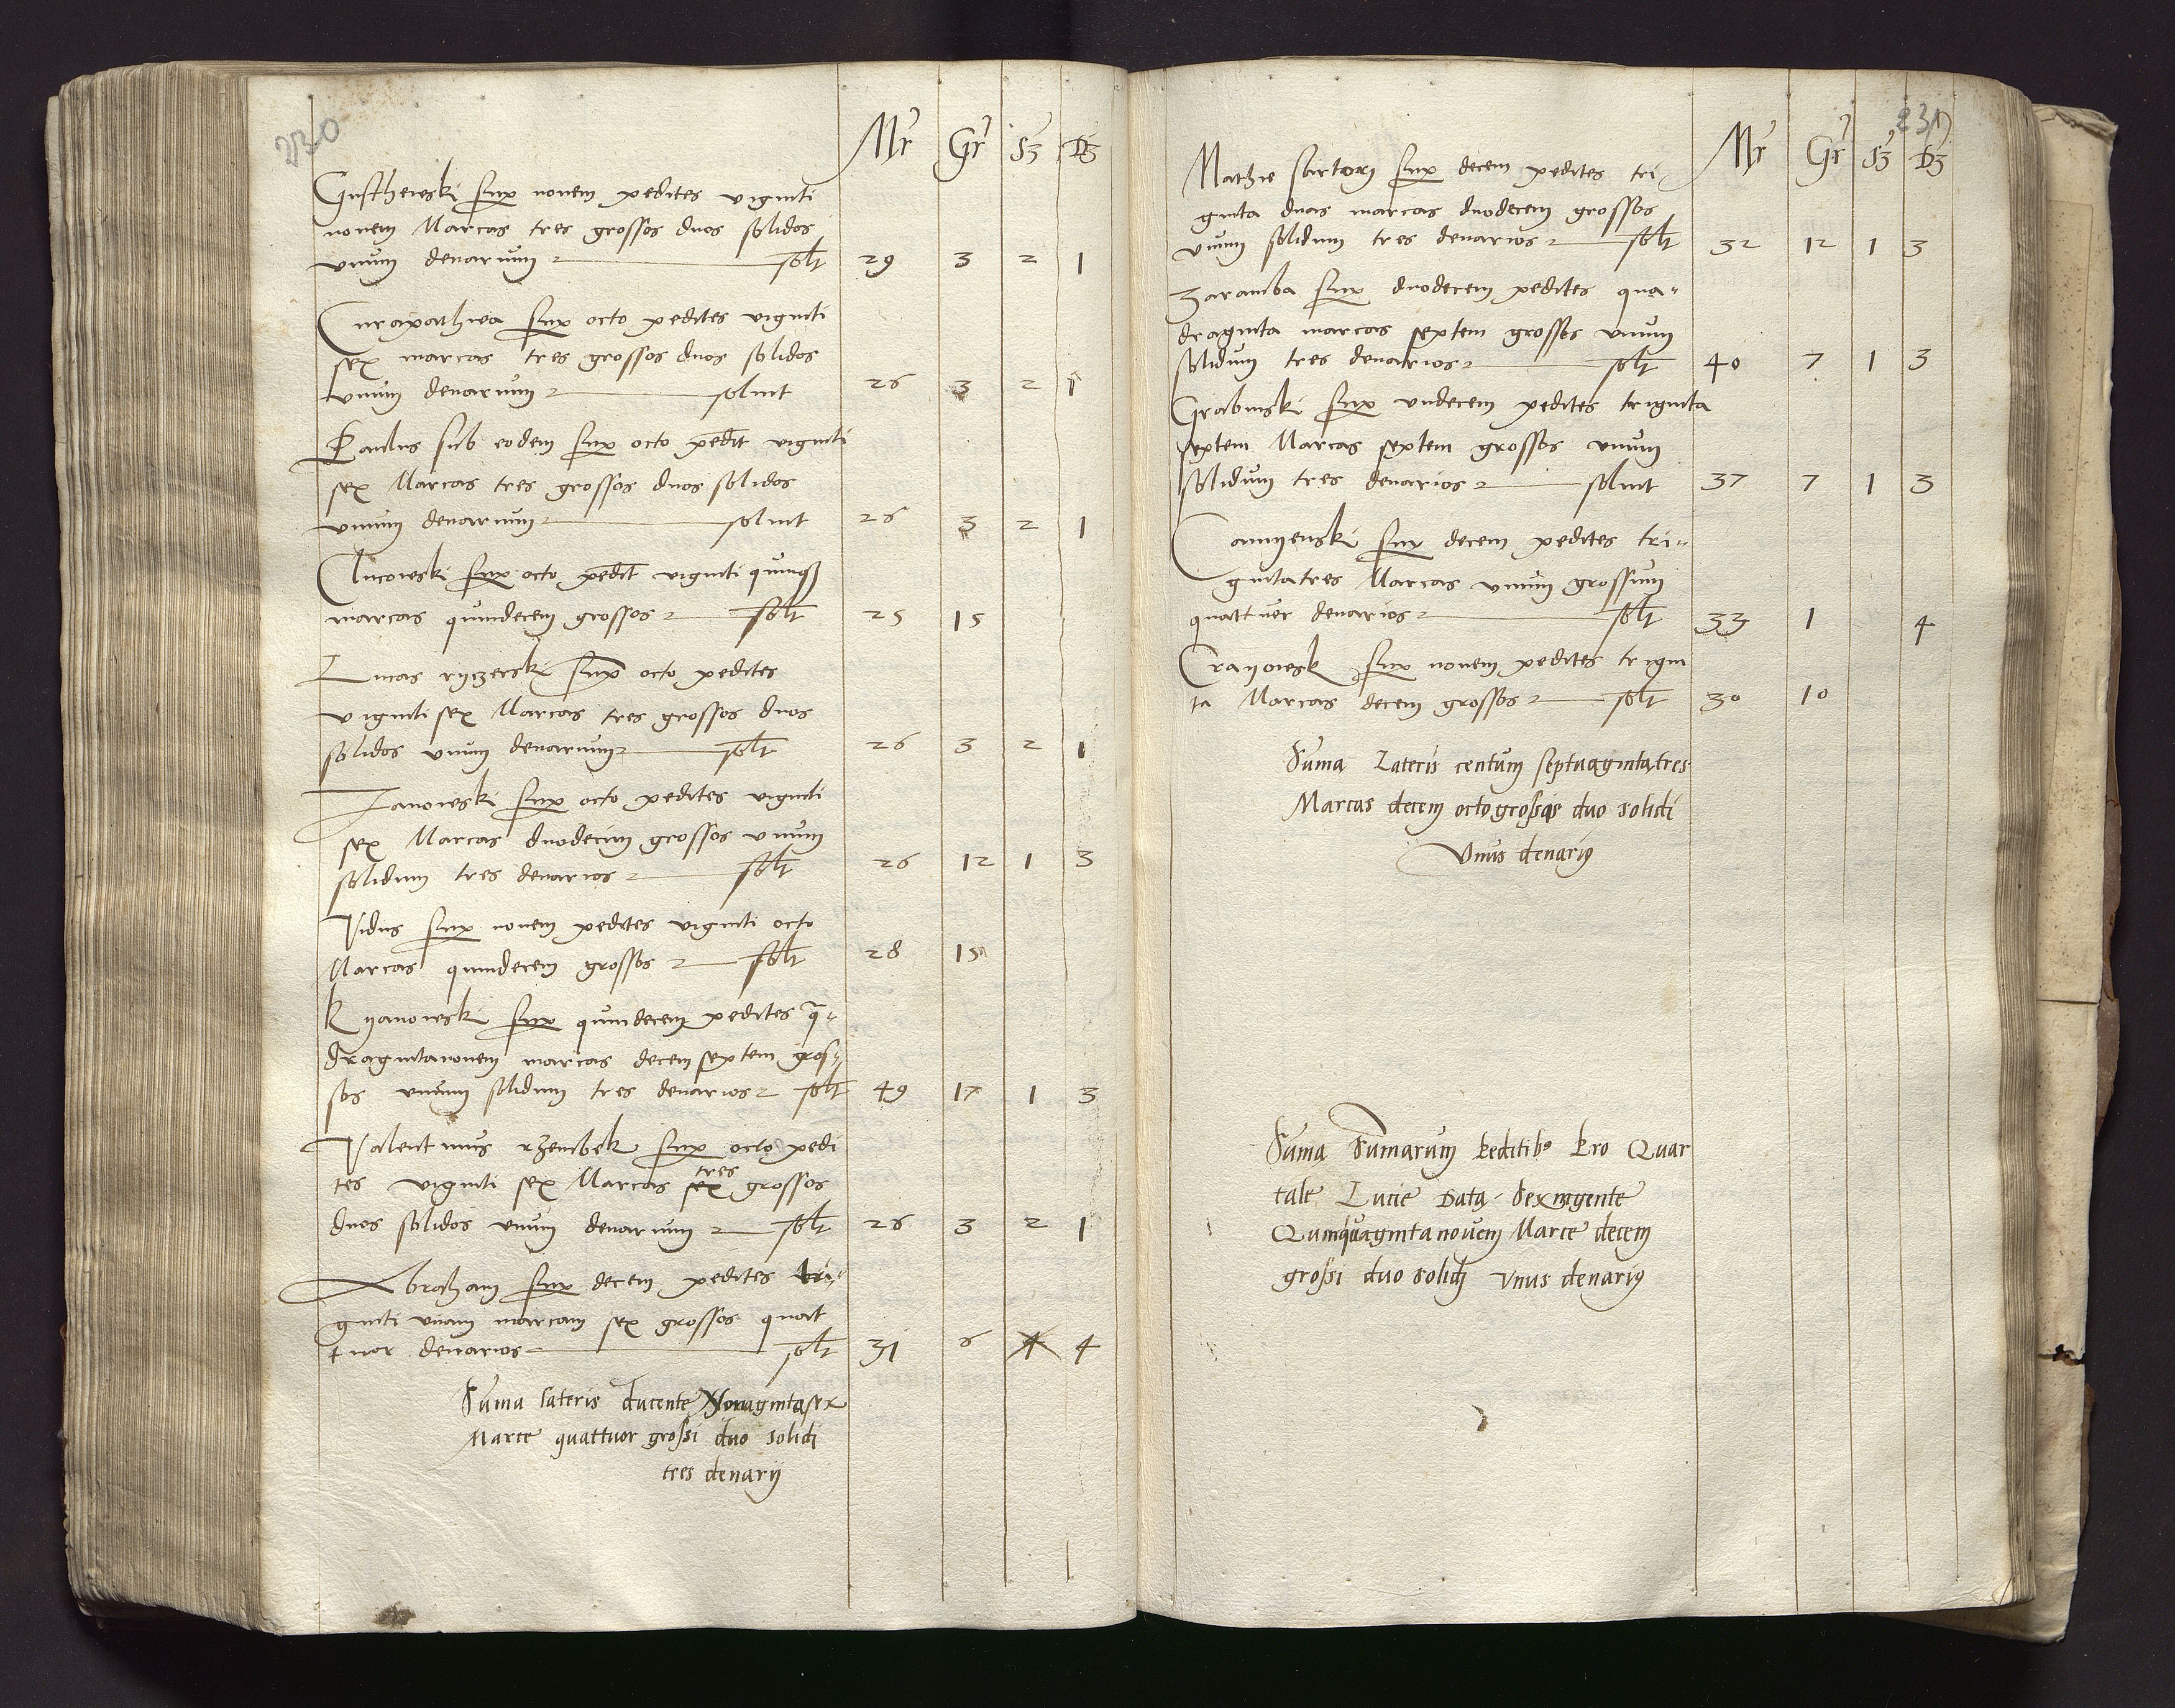 230
Mr Gr S3 D3
Gusthewski sup nonem pedites viginti
nonem Marcas tres grossos duos solidos
vnum denarium solt 29 3 2 1
Curapathwa sup octo pedites viginti
sex marcas tres grossos duos solidos
vnum denarium soluit 26 3 2 1
Paulus sub eodem sup octo pedit viginti
sex Marcas tres grossos duos solidos
vnum denarium soluit 26 3 2 1
sup octo pedit viginti quinq3
marcas quindecem grossos solt 25 15
Lucas ryczerski sup octo pedites
viginti sex Marcas tres grossos duos
solidos vnum denarium solt 26 3 2 1
Janowski sup octo pedites viginti
sex Marcas duodecim grossos vnum
solidum tres denarios solt 26 12 1 3
Vidus sup nonem pedites viginti octo
Marcas quindecem grossos solt 28 15
Kyanowski sup quindecem pedites qa-
dragintanonem marcas decem septem gros-
sos vnum solidum tres denarios solt 49 17 1 3
Valentinus rzembek sup octo pedi
tes viginti sex Marcas tres grossos
duos solidos vnum denarium solt 26 3 2 1
Abraham sup decem pedites tri-
ginti vnam marcam sex grossos quat
tuor denarios solt 31 6 4
Suma lateris ducente Nonagintasex
Marce quattuor grossi duo solidi
tres denarij
231
Mr Gr S3 D3
Mathie sartory sup decem pedites tri
ginta duas marcas duodecem grossos
vnum solidum tres denarios solt 32 12 1 3
Zaramba sup duodecem pedites qua-
draginta marcas septem grossos vnum
solidum tres denarios solt 40 7 1 3
Grabinski sup vndecem pedites triginta
septem Marcas septem grossos vnum
solidum tres denarios soluit 37 7 1 3
Camyenski sup decem pedites tri-
gintatres Marcas vnum grossum
quattuer denarios solt 33 1 4
Crayowsk sup nonem pedites trigin
ta Marcas decem grossos solt 30 10
Suma Lateris centum septuagintatres
Marcas decem octo grossos duo solidi
Vnus denarius
Suma Sumarum Peditibus Pro Quar
tale Lucie Data Sexingente
Quinquagintanovem Marce decem
grossi duo solidi vnus denarius